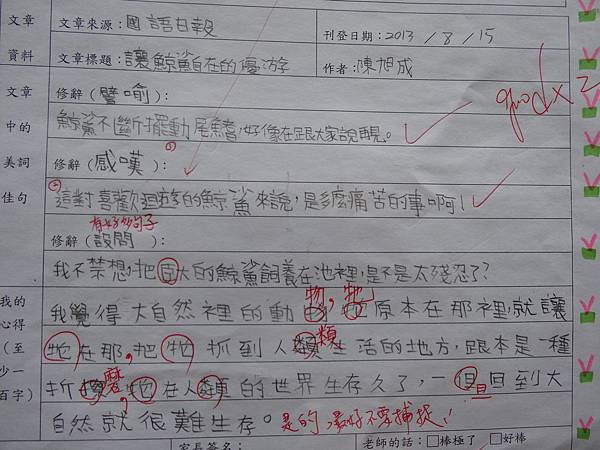 文章 文章來源：國語日報 刊登日期：2013/8/15
資料 文章標題：讓鯨鯊自在的優游 作者：陳旭成
文章 修辭（譬喻）：
中的 鯨鯊不斷擺動尾鰭，好像在跟大家說再見。 good x 2
美詞 修辭（感嘆）：
佳句 這對喜歡迴游的鯨鯊來說，是多麼痛苦的事啊！
有好多句子
修辭（設問）：
我不禁想，把臣大的鯨鯊飼養在池裡，是不是太殘忍了？
我的 我覺得大自然裡的動物，牠原本在那裡，就讓
心得 牠在那，把牠抓到人類生活的地方，跟本是一種
（至
少一 折磨，牠在人類的世界生存久了，一但旦回到大
百字） 自然就很難生存。是的，最好不要捕捉！
家長簽名： 老師的話：□棒極了 □好棒